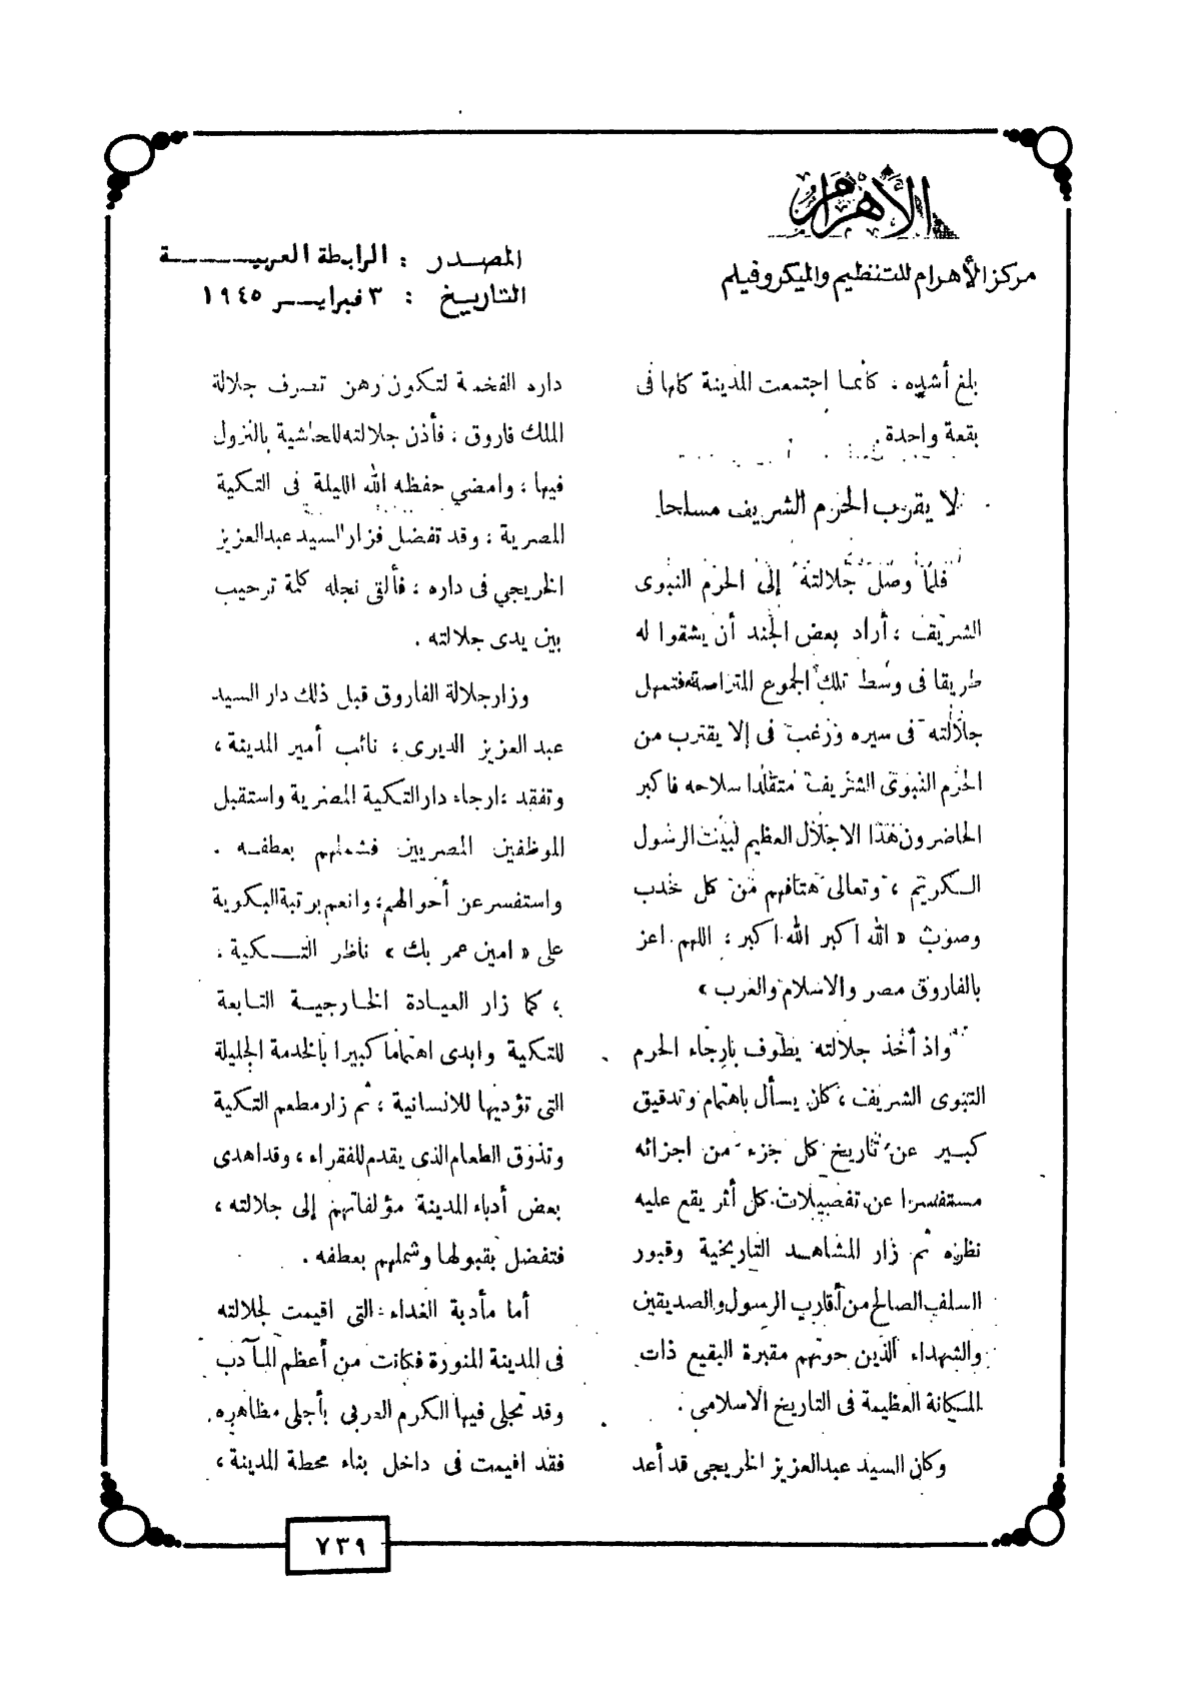 الأهرام
مركز الأهرام للتنظيم والميكروفيلم
المصدر : الرابطة العربية
التاريخ : ٣ فبراير ١٩٤٥
بلغ أشده ، كأنما اجتمعت المدينة كلها فى
بقعة واحدة .
لا يقرب الحرم الشريف مسلحا
فلما وصل جلالته إلى الحرم النبوى
الشريف ، أراد بعض الجند أن يشقوا له
طريقا فى وسط تلك الجموع المتراصة فتمهل
جلالته فى سيره ورغب فى إلا يقترب من
الحرم النبوى الشريف متقلدا سلاحه فاكبر
الحاضرون هذا الاجلال العظيم لبيت الرسول
الكريم ، وتعالى هتافهم من كل حدب
وصوب « الله اكبر الله اكبر ، اللهم اعز
بالفاروق مصر والاسلام والعرب »
واذ أخذ جلالته يطوف بارجاء الحرم
النبوى الشريف ، كان يسأل باهتمام وتدقيق
كبير عن تاريخ كل جزء من اجزائه
مستفسرا عن تفصيلات كل أثر يقع عليه
نظره ثم زار المشاهد التاريخية وقبور
السلف الصالح من أقارب الرسول والصديقين
والشهداء الذين حوتهم مقبرة البقيع ذات
المكانة العظيمة فى التاريخ الاسلامى .
وكان السيد عبدالعزيز الخريجى قد أعد
داره الفخمة لتكون رهن تصرف جلالة
الملك فاروق ، فأذن جلالته للحاشية بالنزول
فيها ، وامضي حفظه الله الليلة فى التكية
المصرية ، وقد تفضل فزار السيد عبدالعزيز
الخريجي فى داره ، فألقى نجله كلمة ترحيب
بين يدى جلالته .
وزار جلالة الفاروق قبل ذلك دار السيد
عبد العزيز الديرى ، نائب أمير المدينة ،
وتفقد ارجاء دار التكية المصرية واستقبل
الموظفين المصريين فشملهم بعطفه .
واستفسر عن أحوالهم ، وانعم برتبة البكوية
على « امين عمر بك » ناظر التكية ،
، كما زار العيادة الخارجية التابعة
للتكية وابدى اهتماما كبيرا بالخدمة الجليلة
التى تؤديها للانسانية ، ثم زار مطعم التكية
وتذوق الطعام الذى يقدم للفقراء ، وقد اهدى
بعض أدباء المدينة مؤلفاتهم إلى جلالته ،
فتفضل بقبولها وشملهم بعطفه .
أما مأدبة الغداء التى اقيمت لجلالته
فى المدينة المنورة فكانت من أعظم المآدب
وقد تجلى فيها الكرم العربى بأجلى مظاهره
فقد اقيمت فى داخل بناء محطة المدينة ،
٧٣٩